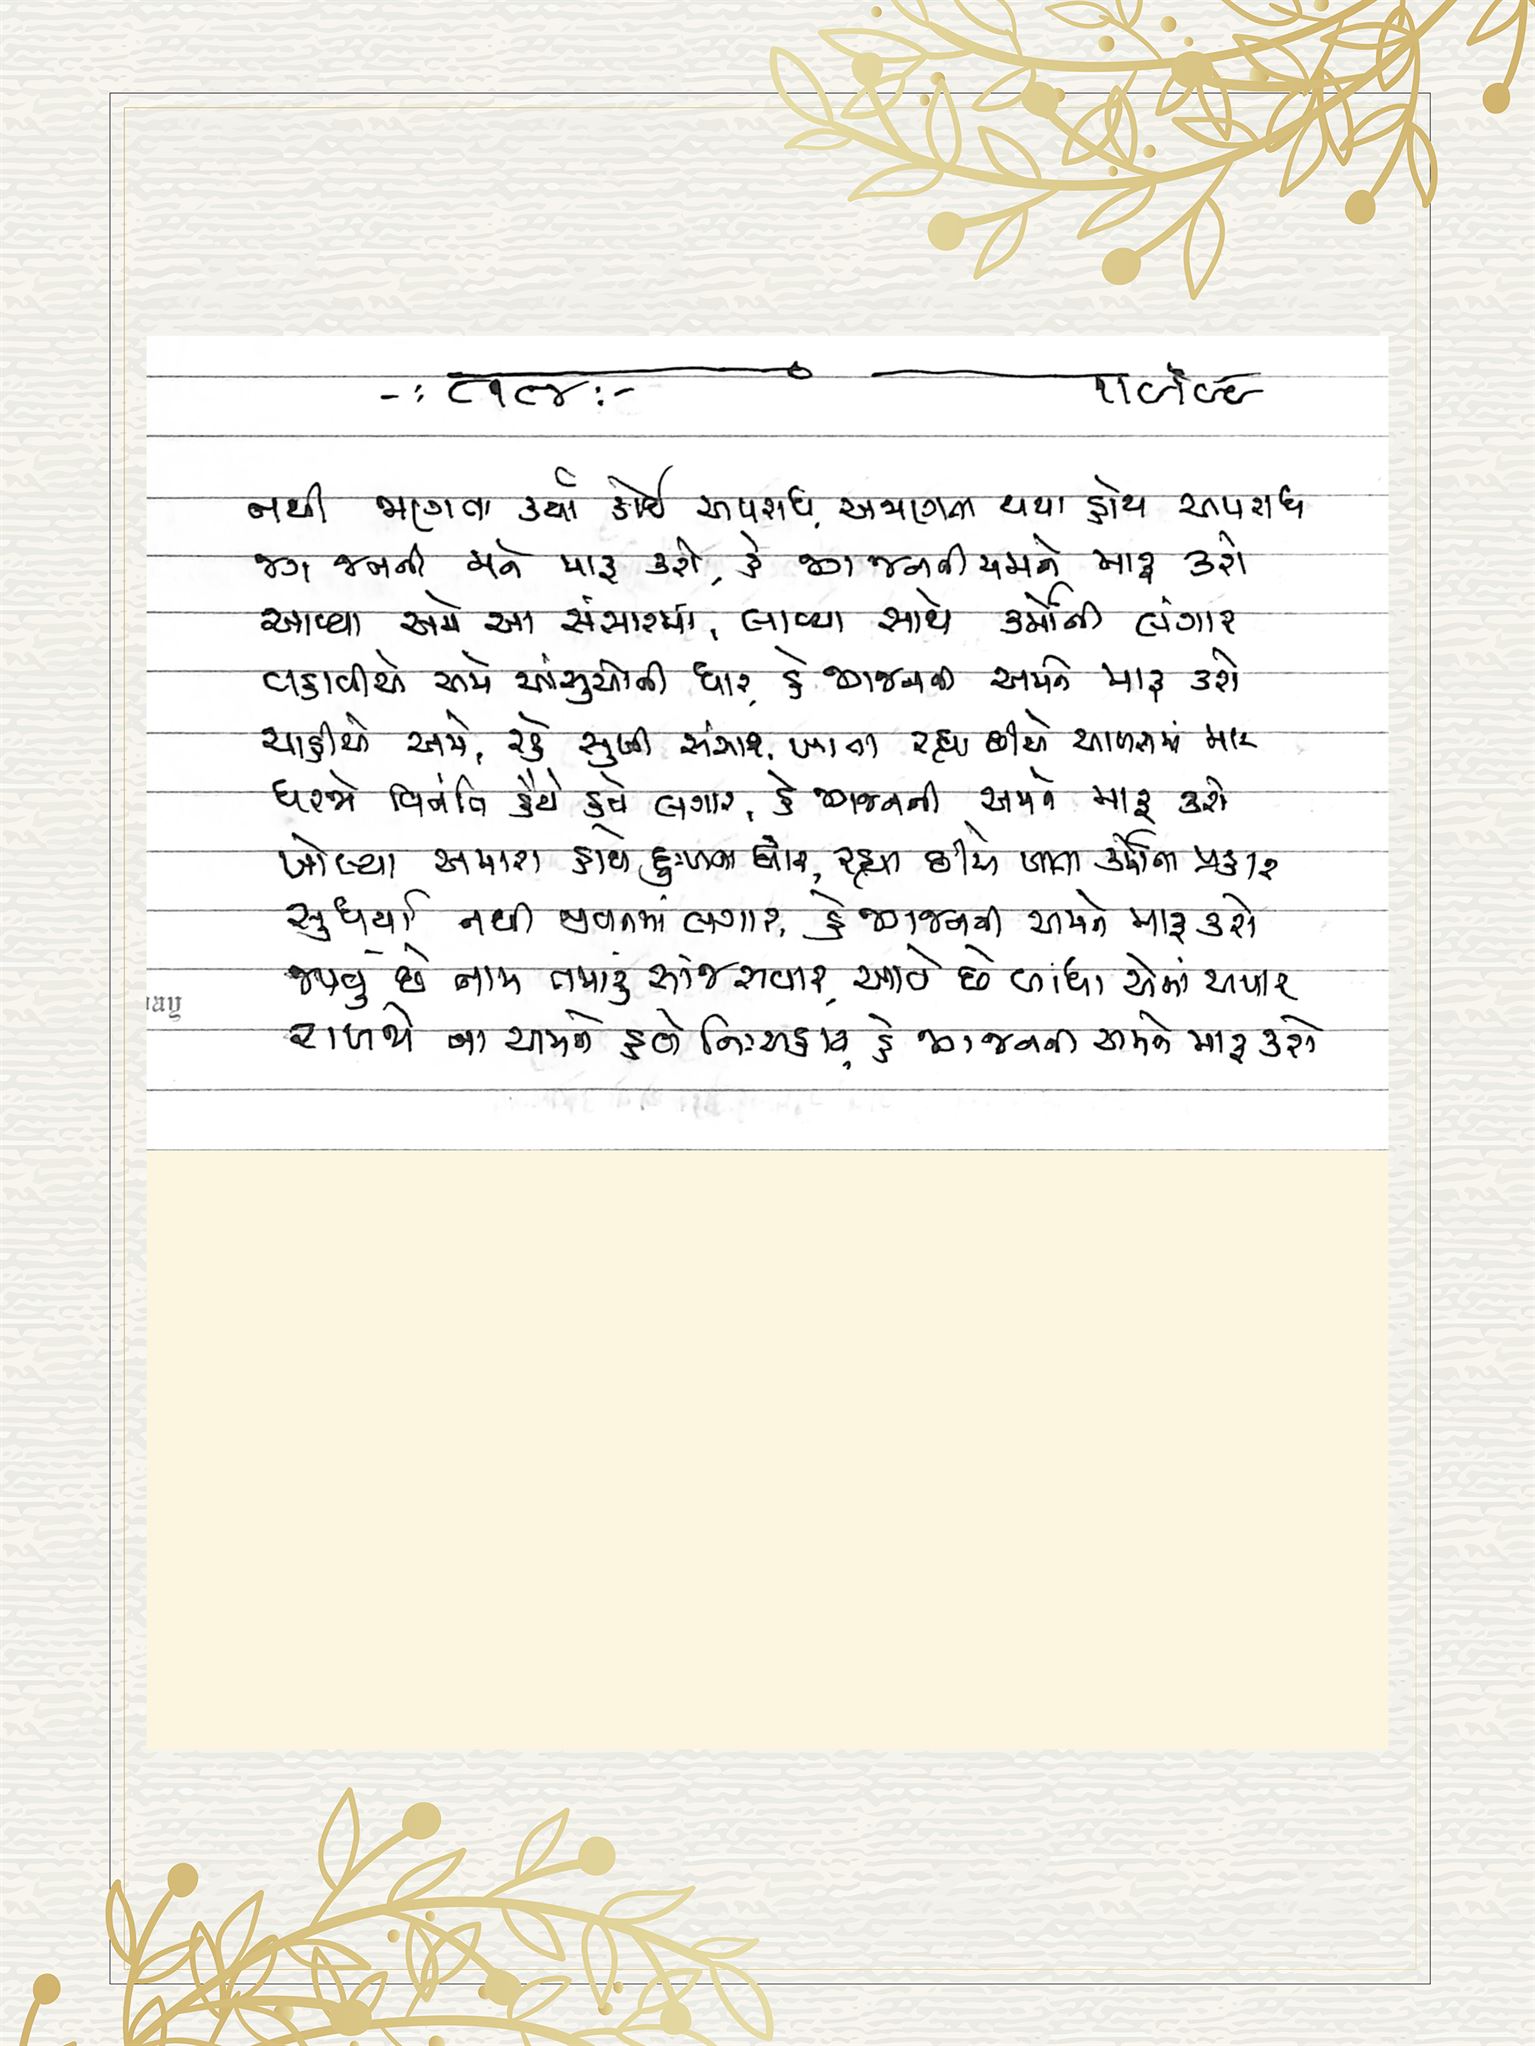 -: ૮૧૯૪ :-
નથી જાણતા કર્યા કોઈ અપરાધ, અજાણતા થયા હોય અપરાધ
જગ જનની મને માફ કરો, હે જગજનની અમને માફ કરો
આવ્યા અમે આ સંસારમાં, લાવ્યા સાથે કર્મોની લંગાર
વહાવીએ અમે આંસુઓની ધાર, હે જગજનની અમને માફ કરો
ચાહીએ અમે, રહે સુખી સંસાર, ખાતા રહ્યા છીએ માર
ધરજો વિનંતિ હૈયે હવે લગાર, હે જગજનની અમને માફ કરો
ખોલ્યા અમારા હાથે દુઃખના દ્વાર, રહ્યા છીએ ખાતા કર્મોના પ્રહાર
સુધર્યા નથી જીવનમાં લગાર, હે જગજનની અમને માફ કરો
જપવું છે નામ તમારું સાંજ સવાર, આવે છે બાધા એમાં અપાર
રાખજો ના અમને હવે નિઃસહાય, હે જગજનની અમને માફ કરો
uay